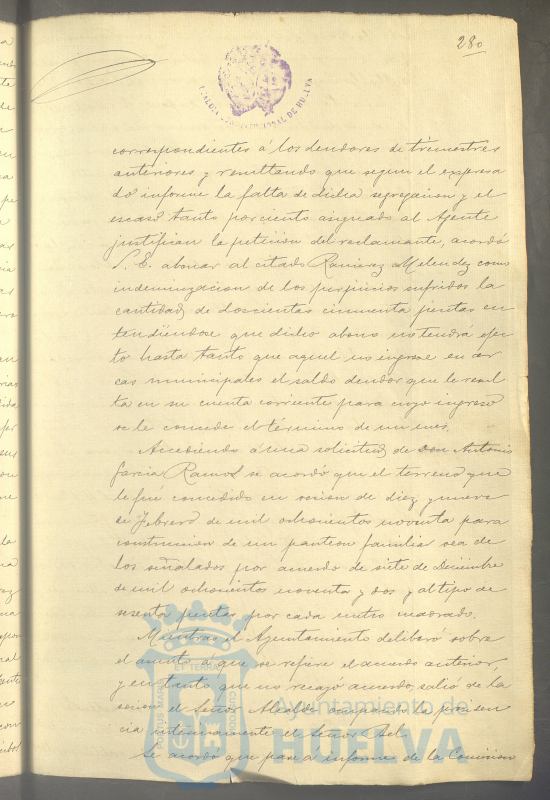 280
ALCALDIA CONSTITUCIONAL DE HUELVA
correspondientes á los deudores de trimestres
anteriores y resultando que segun el expresa
do informe la falta de dicha segregacion y el
escaso tanto por ciento asignado al Agente
justifican la peticion del reclamante, acordó
S. E. abonar al citado Ramirez Melendez como
indemnizacion de los perjuicios sufridos la
cantidad de doscientas cincuenta pesetas en
tendiéndose que dicho abono no tendrá efec
to hasta tanto que aquel no ingrese en ar
cas municipales el saldo deudor que le resul
ta en su cuenta corriente para cuyo ingreso
se le concede el término de un mes.
Accediendo á una solicitud de don Antonio
Garcia Ramos se acordó que el terreno que
le fué concedido en sesion de diez y nueve
de Febrero de mil ochocientos noventa para
construccion de un panteon familiar sea de
los señalados por acuerdo de siete de Diciembre
de mil ochocientos noventa y dos y al tipo de
sesenta pesetas por cada metro cuadrado.
Mientras el Ayuntamiento deliberó sobre
el asunto á que se refiere el acuerdo anterior,
y en tanto que no recayó acuerdo, salió de la
sesion el Señor Alcalde ocupando la presiden
cia interinamente el Señor Bel.
Se acordó que pase á informe de la Comision
PORTUS MARIS ET TERRAE CUSTODIA
Ayuntamiento de
HUELVA